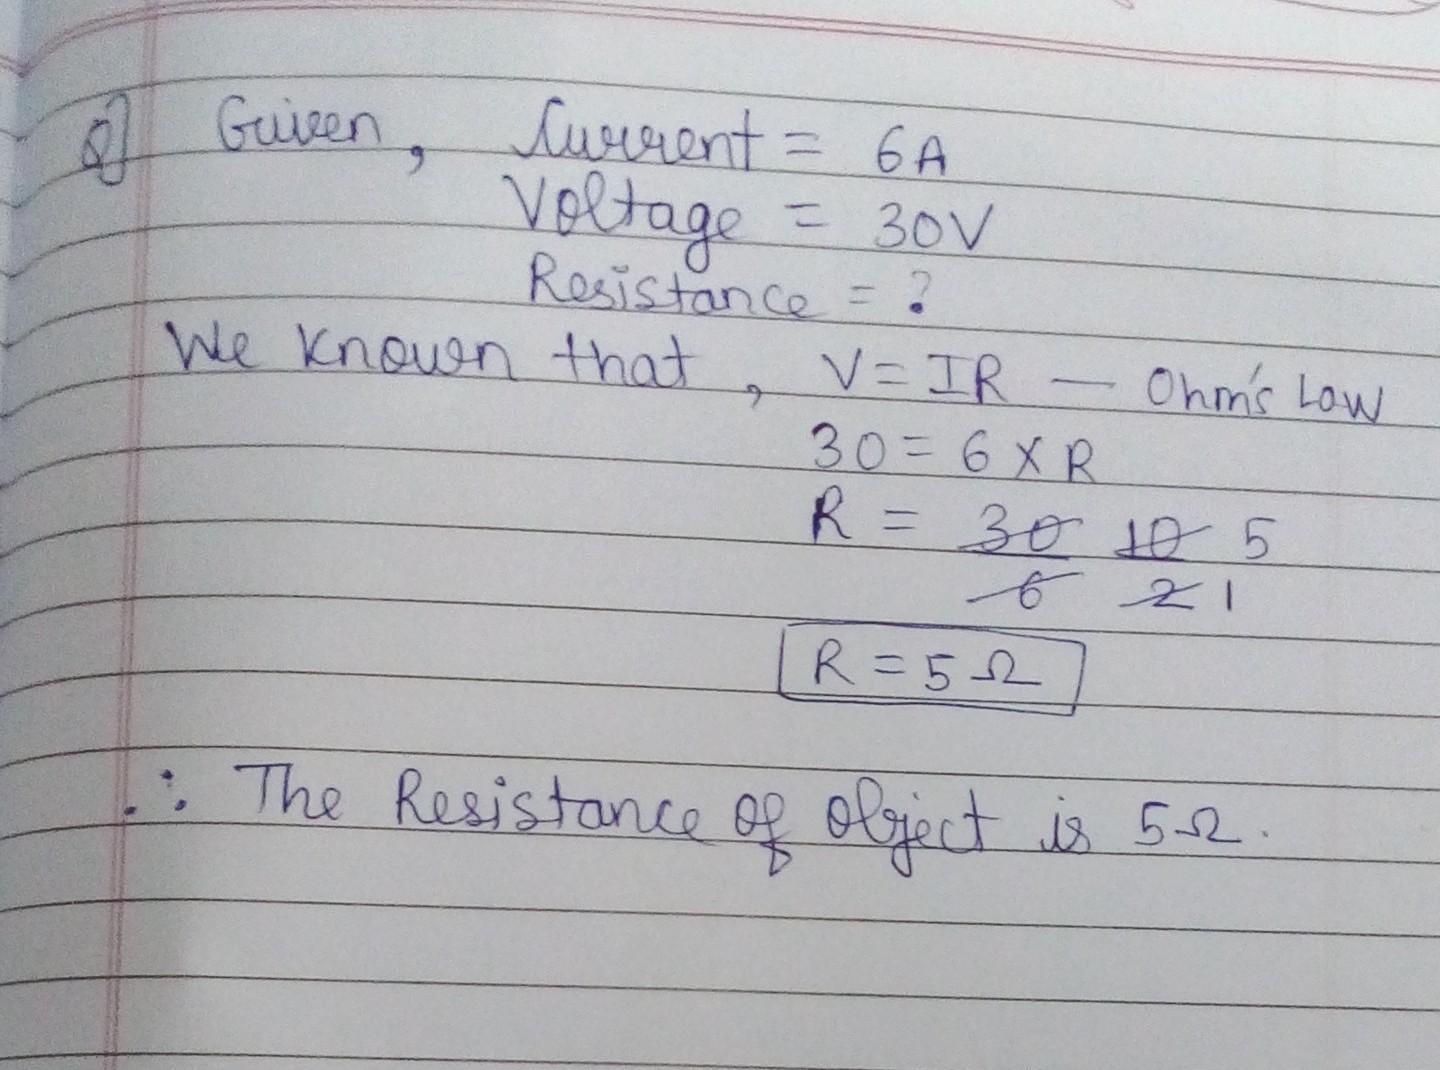 Q] Given, Current = 6A
Voltage = 30V
Resistance = ?
We known that, V = IR — Ohm's Law
30 = 6 × R
R = 30 10 5
6 2 1
R = 5 Ω
∴ The Resistance of object is 5Ω.